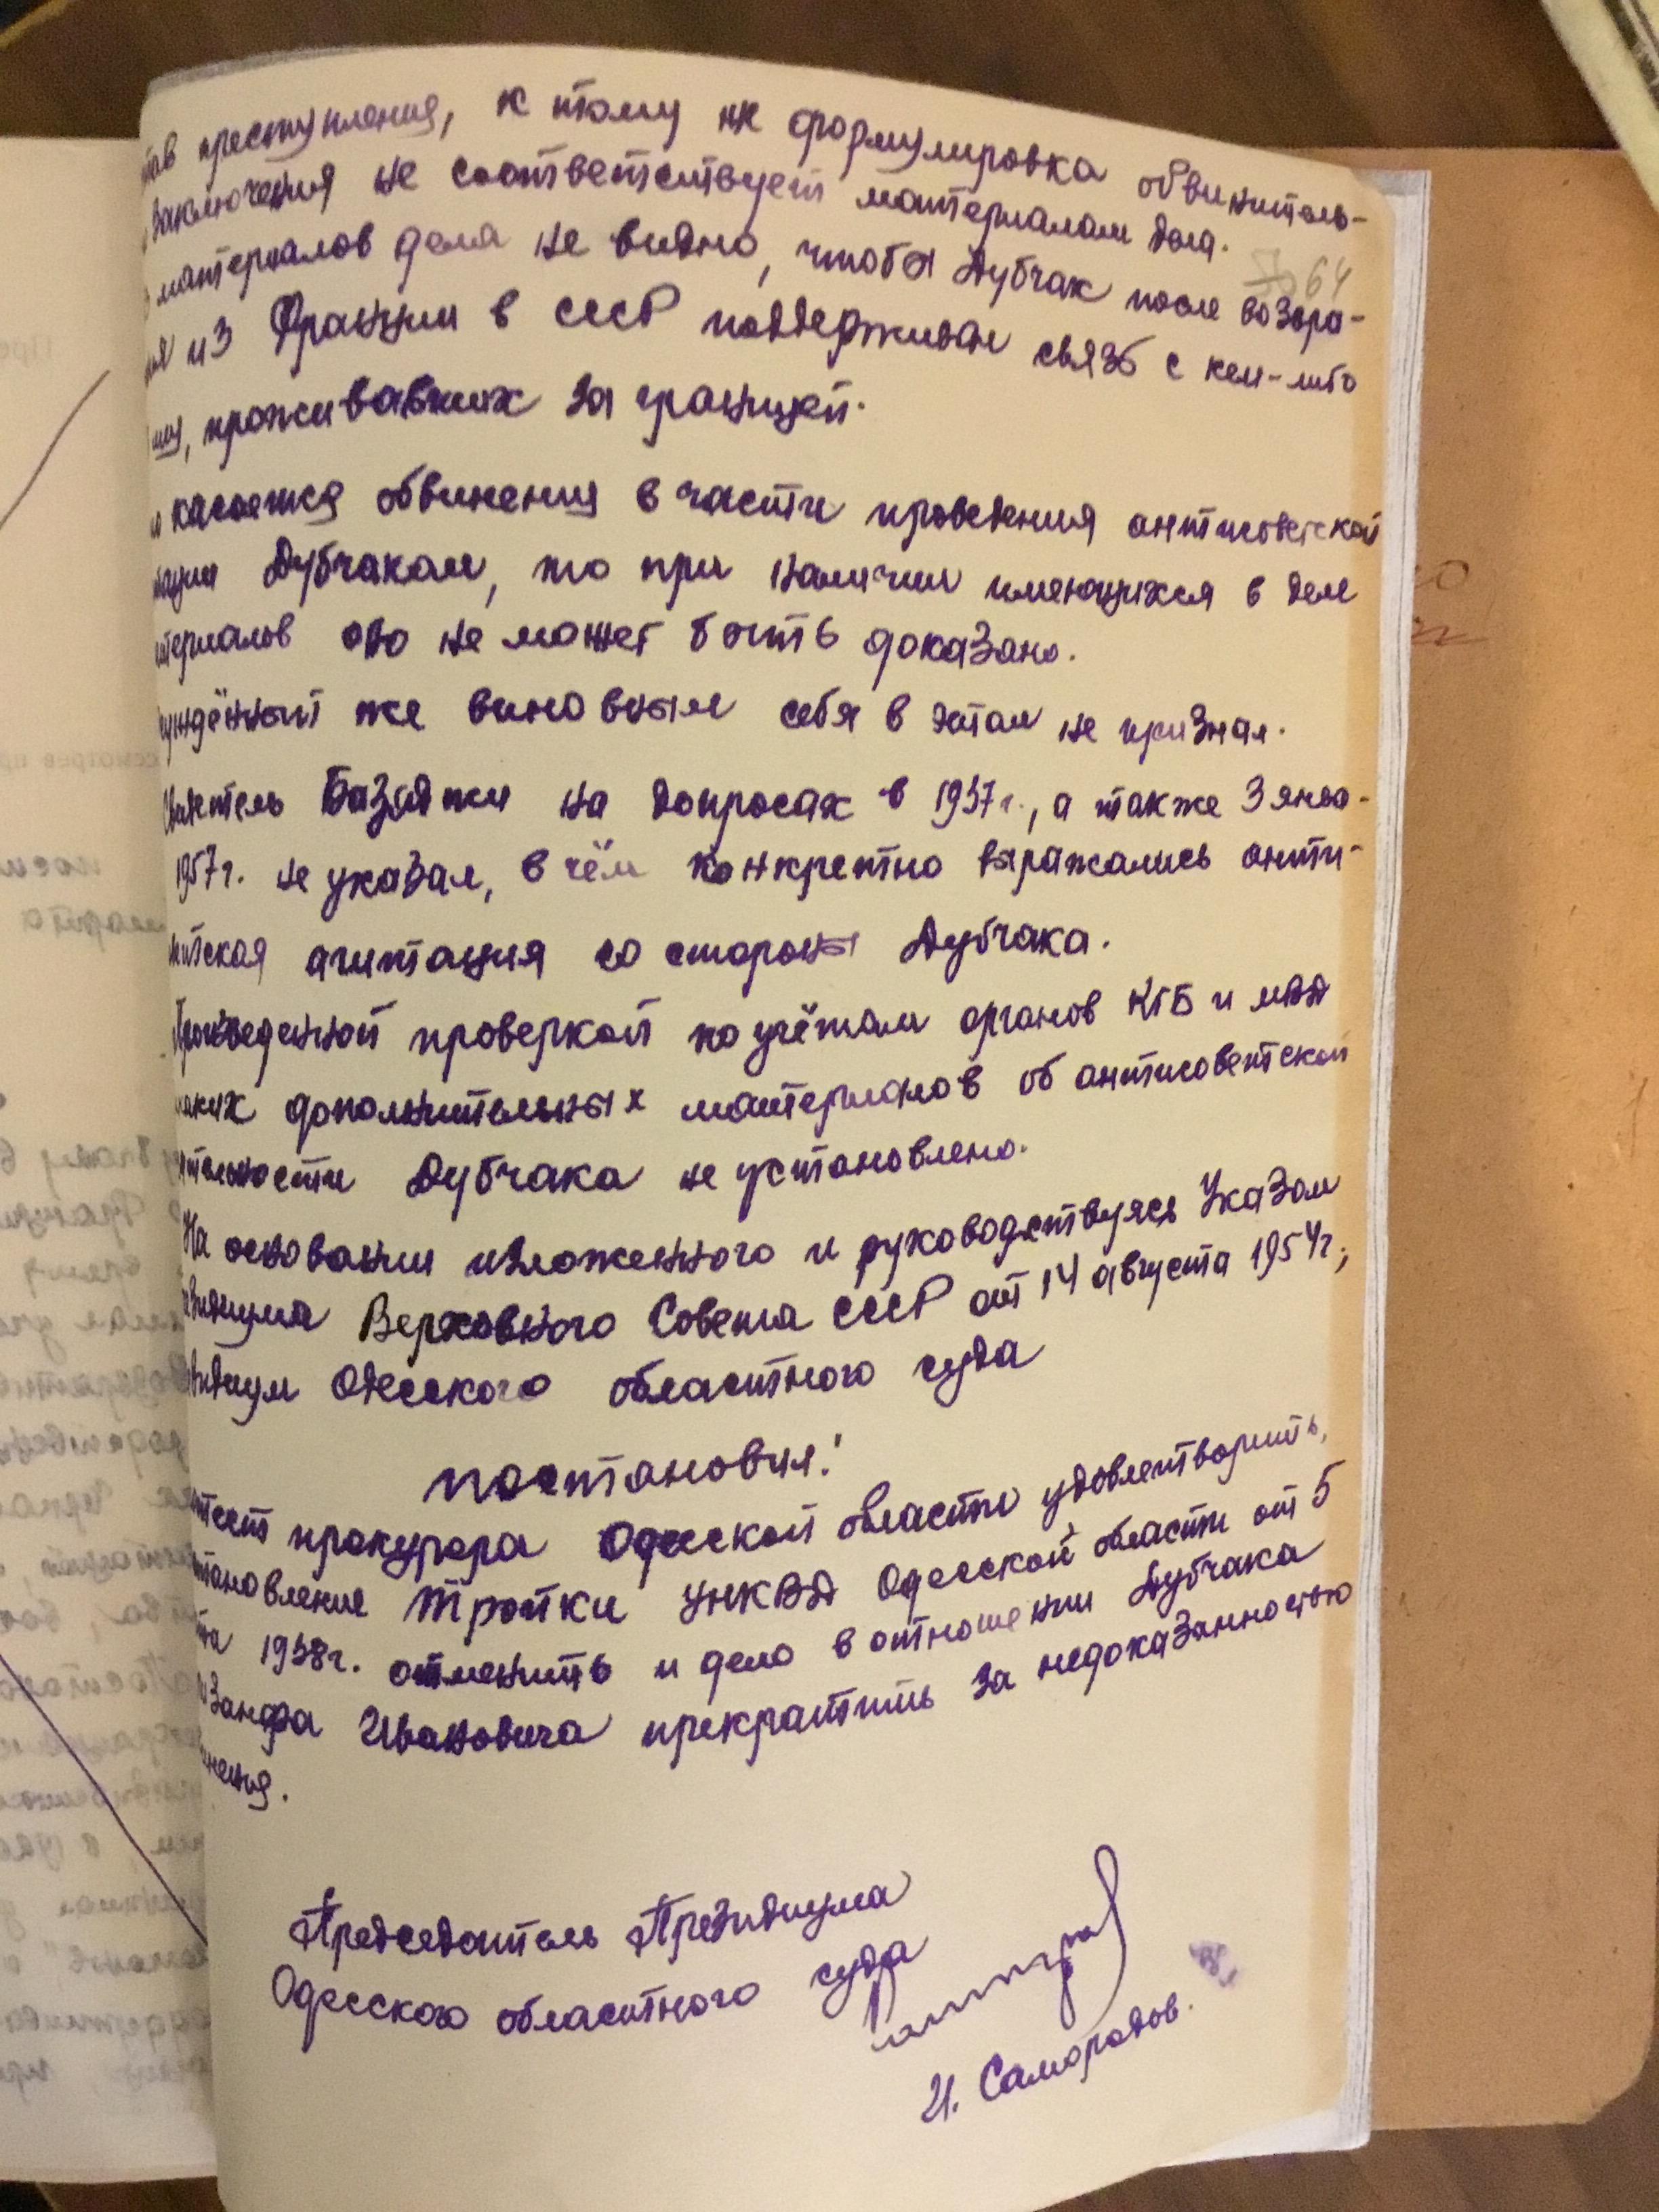 тав преступления, к тому же формулировка обвинитель-
заключения не соответствует материалам дела.
64
материалов дела не видно, чтобы Дубчак после возвра-
ия из Франции в СССР поддерживал связь с кем-либо
проживавших за границей.
касается обвинения в части проведения антисоветской
ации Дубчаком, то при наличии имеющихся в деле
териалов оно не может быть доказано.
уждённый же виновным себя в этом не признал.
Свидетель на допросах в 1937г., а также 3 янва-
1957г. не указал, в чём конкретно выражались анти-
етская агитация со стороны Дубчака.
Произведенной проверкой по учётам органов КГБ и МВД
аких дополнительных материалов об антисоветской
тельности Дубчака не установлено.
На основании изложенного и руководствуясь Указом
езидиума Верховного Совета СССР от 14 августа 1954г.,
езидиум Одесского областного суда
постановил:
тест прокурора Одесской области удовлетворить,
становление Тройки УНКВД Одесской области от 5
та 1938г. отменить и дело в отношении Дубчака
занфа Ивановича прекратить за недоказанностью
инения.
Председатель Президиума
Одесского областного суда
И. Самородов.